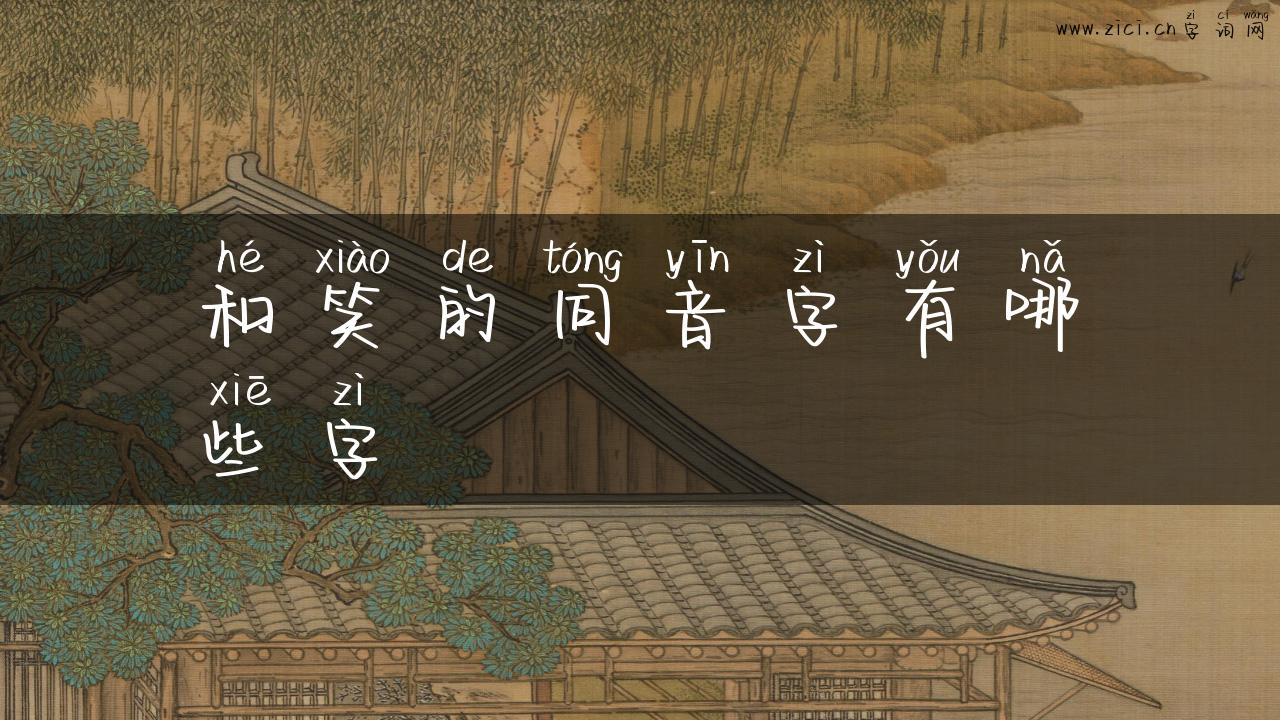 zì cí wǎng
www.zici.cn字词网
hé xiào de tóng yīn zì yǒu nǎ
和笑的同音字有哪
xiē zì
些字